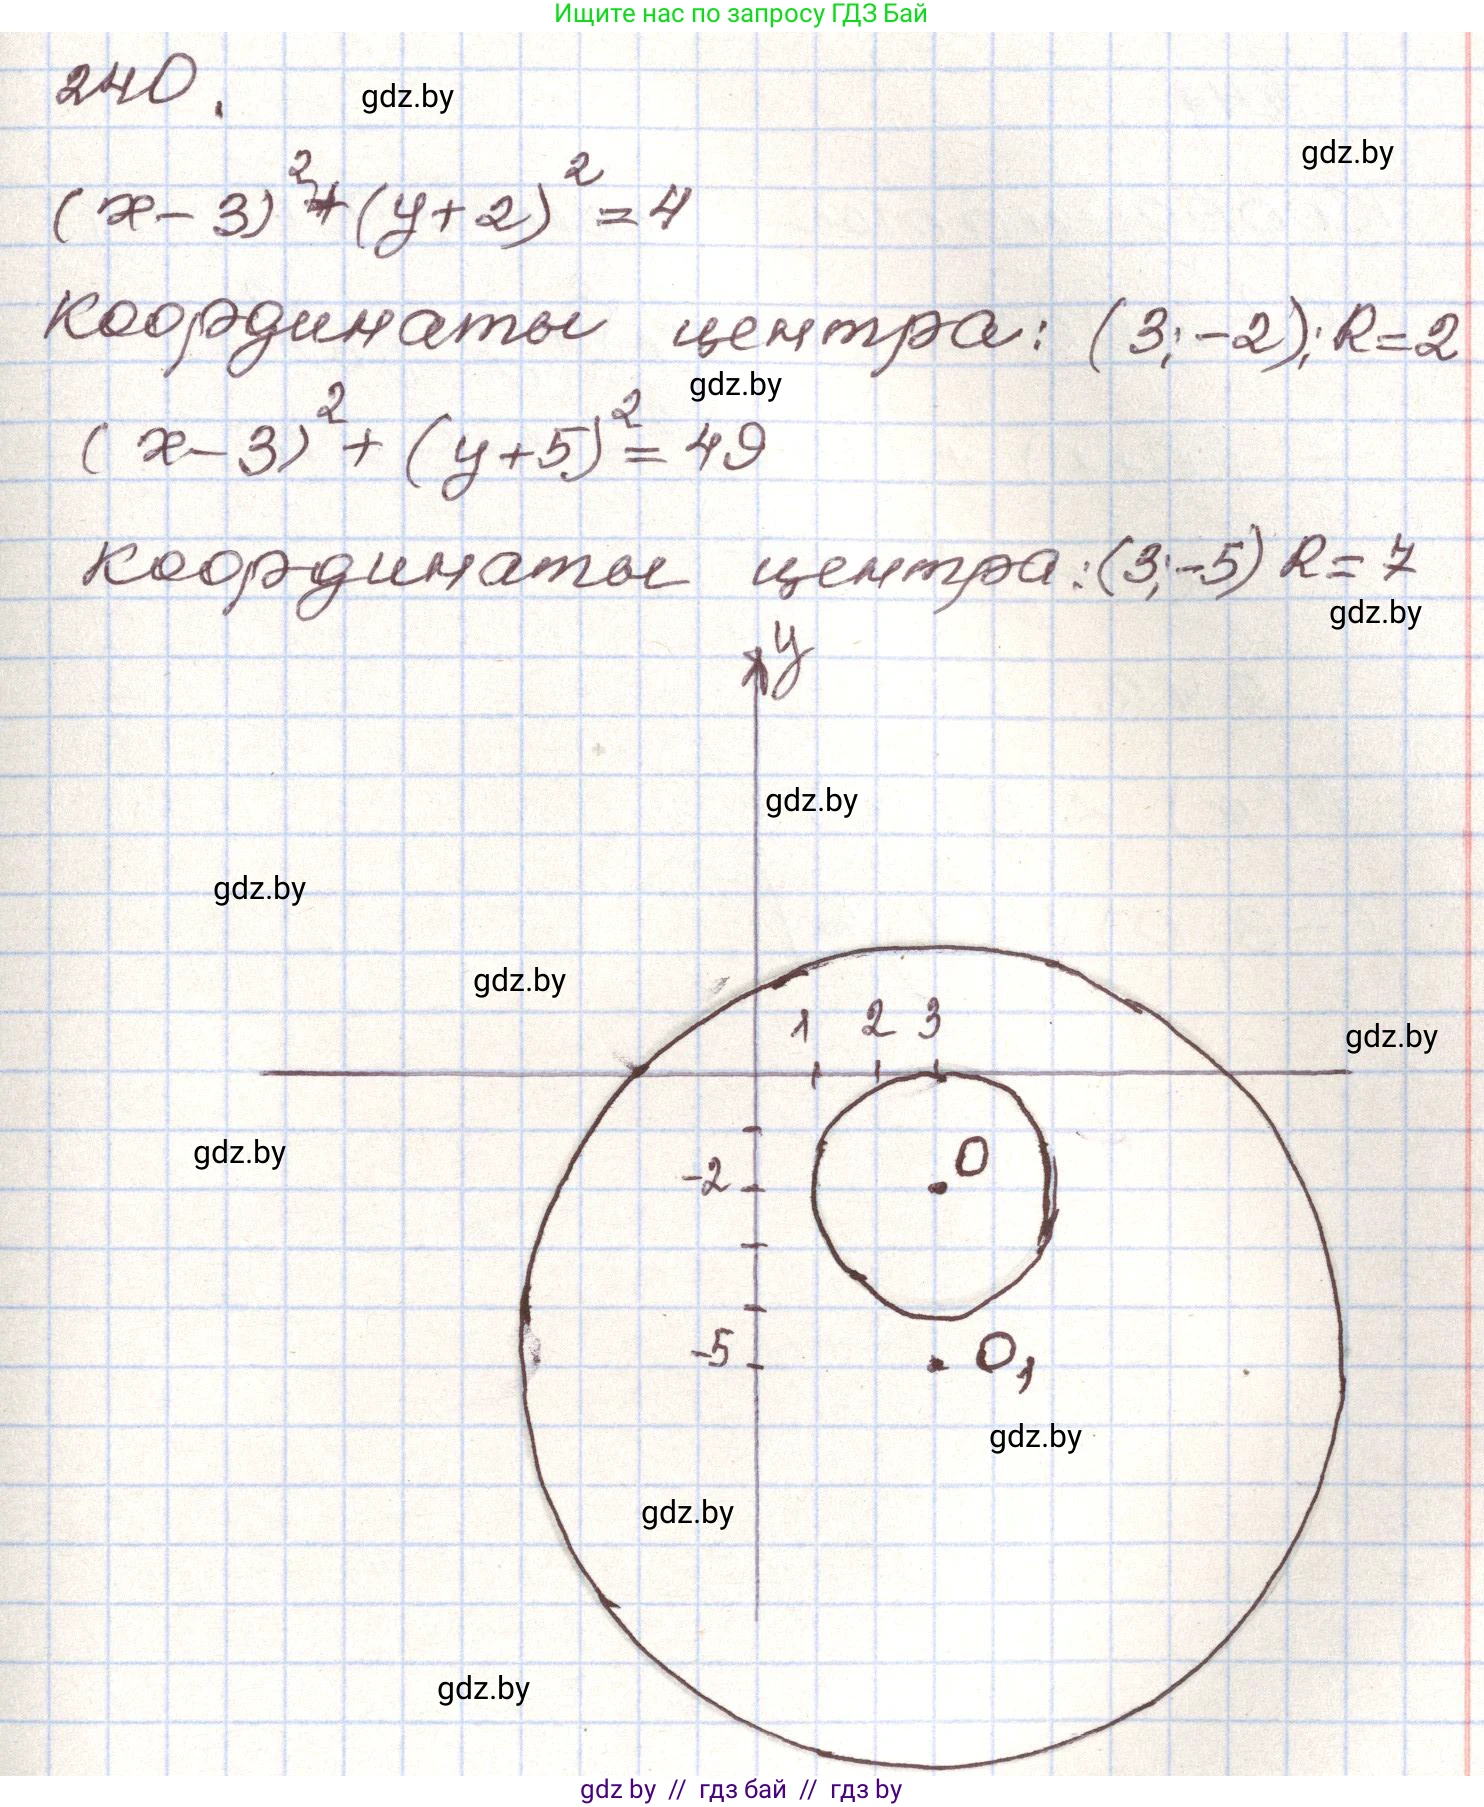 Ищите нас по запросу ГДЗ Бай
240.
gdz.by
gdz.by
(x-3)²+(y+2)²=4
Координаты центра: (3;-2); R=2
gdz.by
(x-3)²+(y+5)²=49
Координаты центра: (3;-5) R=7
gdz.by
y
gdz.by
gdz.by
gdz.by
1 2 3
gdz.by
gdz.by
O
-2
-5
O₁
gdz.by
gdz.by
gdz.by
gdz by // гдз бай // гдз by